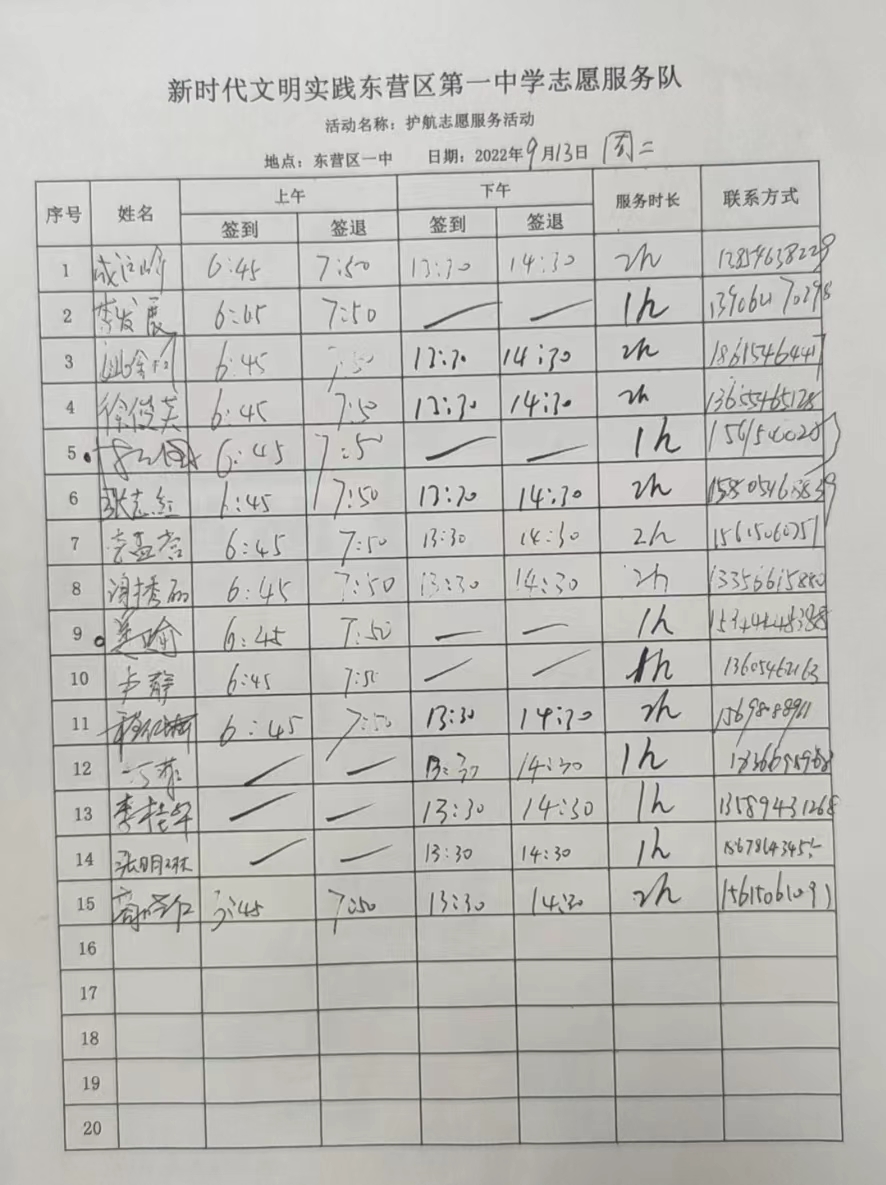 新时代文明实践东营区第一中学志愿服务队
活动名称：护航志愿服务活动
地点：东营区一中 日期：2022年9月13日 周二
序号 姓名 上午 下午 服务时长 联系方式
签到 签退 签到 签退
1 6:45 7:50 13:30 14:30 2h
2 李发展 6:45 7:50 — — 1h
3 6:45 7:50 13:30 14:30 2h
4 徐俊英 6:45 7:50 13:30 14:30 2h 13655465128
5 6:45 7:50 — — 1h
6 张志红 6:45 7:50 13:30 14:30 2h
7 6:45 7:50 13:30 14:30 2h
8 6:45 7:50 13:30 14:30 2h 13356615880
9 6:45 7:50 — — 1h
10 卢静 6:45 7:50 — — 1h 13605462163
11 6:45 7:50 13:30 14:30 2h
12 — — 13:30 14:30 1h
13 李桂华 — — 13:30 14:30 1h 13589431268
14 — — 13:30 14:30 1h
15 6:45 7:50 13:30 14:30 2h 15615061091
16
17
18
19
20